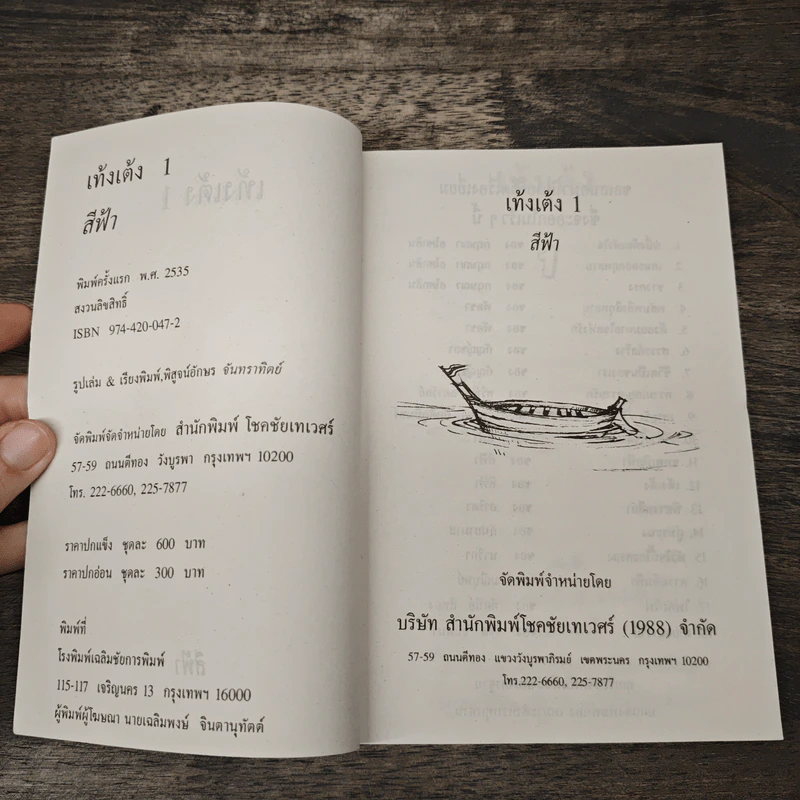 เท้งเต้ง 1
สีฟ้า
พิมพ์ครั้งแรก พ.ศ. 2535
สงวนลิขสิทธิ์
ISBN 974-420-047-2
รูปเล่ม & เรียงพิมพ์,พิสูจน์อักษร จันทราทิตย์
จัดพิมพ์จัดจำหน่ายโดย สำนักพิมพ์ โชคชัยเทเวศร์
57-59 ถนนตีทอง วังบูรพา กรุงเทพฯ 10200
โทร. 222-6660, 225-7877
ราคาปกแข็ง ชุดละ 600 บาท
ราคาปกอ่อน ชุดละ 300 บาท
พิมพ์ที่
โรงพิมพ์เฉลิมชัยการพิมพ์
115-117 เจริญนคร 13 กรุงเทพฯ 16000
ผู้พิมพ์ผู้โฆษณา นายเฉลิมพงษ์ จินดานุทัตต์
เท้งเต้ง 1
สีฟ้า
จัดพิมพ์จำหน่ายโดย
บริษัท สำนักพิมพ์โชคชัยเทเวศร์ (1988) จำกัด
57-59 ถนนตีทอง แขวงวังบูรพาภิรมย์ เขตพระนคร กรุงเทพฯ 10200
โทร.222-6660, 225-7877